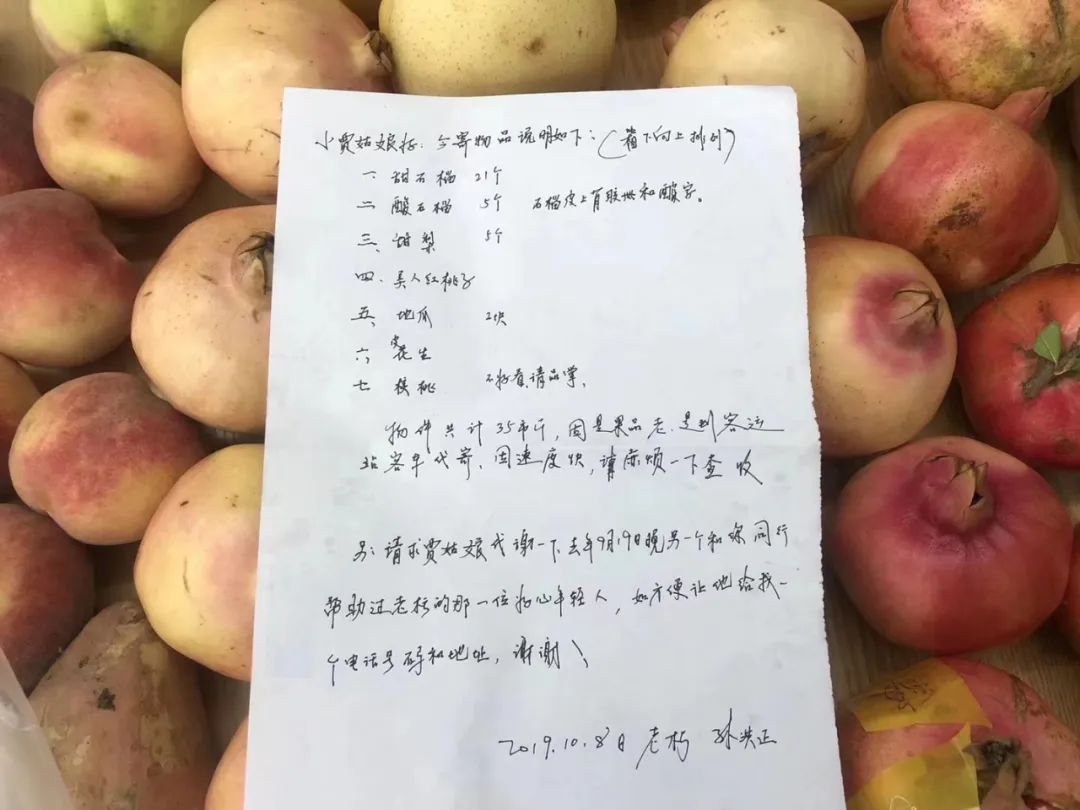 小贾姑娘好：今寄物品说明如下：（箱下向上排列）
一 甜石榴 21个
二 酸石榴 5个 石榴皮上有胶带和酸字。
三、甜梨 5个
四、美人红桃子
五、地瓜 2块
六 花生
七 核桃 不好看请品尝、
物件共计35市斤，因是果品 是到客运
站客车代寄、因速度快，请麻烦一下查收
另：请求贾姑娘代谢一下去年9月19日晚另一个和你同行
帮助过老朽的那一位好心年轻人，如方便让他给我一
个电话号码和地址，谢谢！
2019.10.8日 老朽 孙洪正